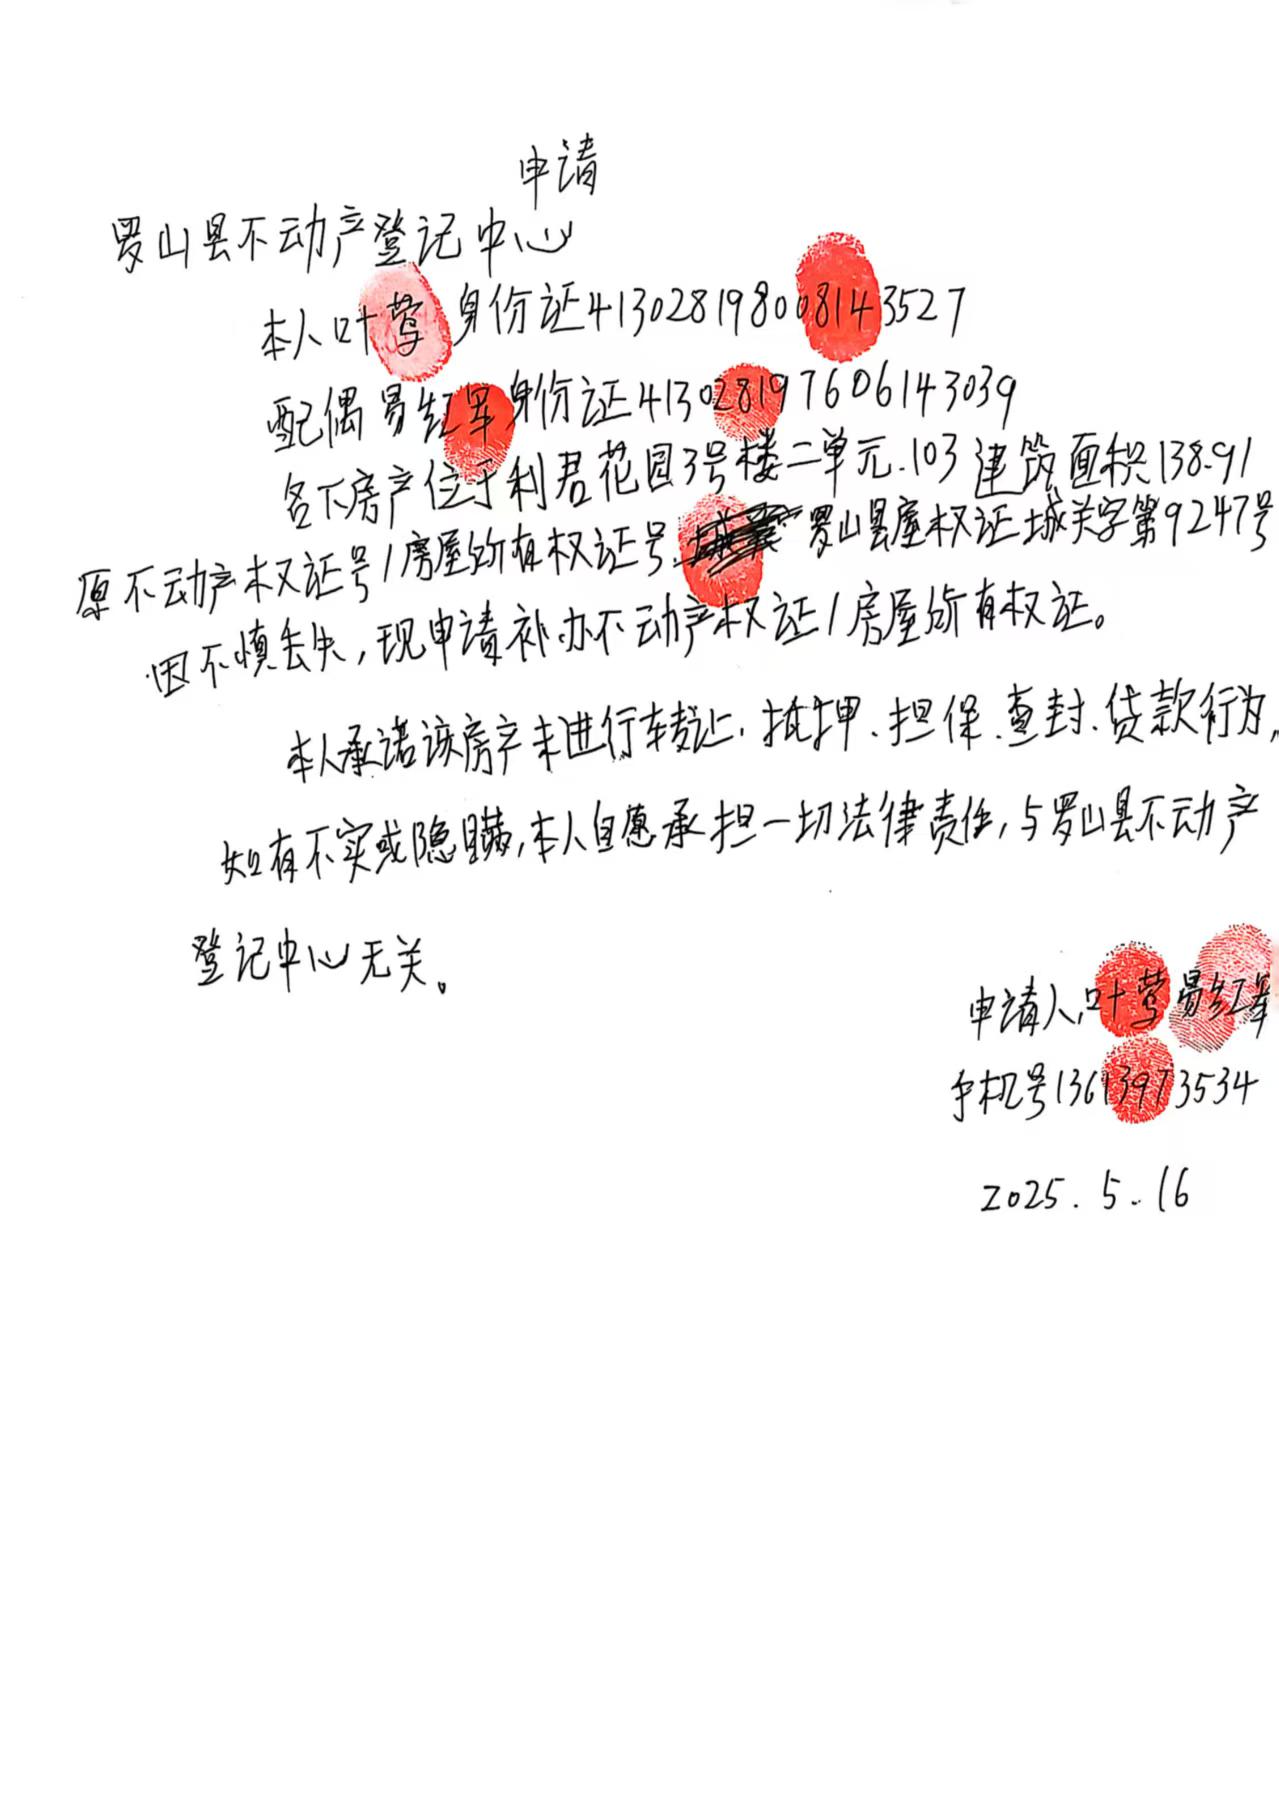 申请
罗山县不动产登记中心
本人叶莺身份证413028198008143527
配偶易红军身份证413028197606143039
名下房产位于利君花园3号楼二单元.103建筑面积138.91
原不动产权证号/房屋所有权证号、罗山县屋权证城关字第9247号
因不慎丢失,现申请补办不动产权证/房屋所有权证。
本人承诺该房产未进行转让、抵押、担保、查封、贷款行为,
如有不实或隐瞒,本人自愿承担一切法律责任,与罗山县不动产
登记中心无关。
申请人,叶莺易红军
手机号13613973534
2025.5.16